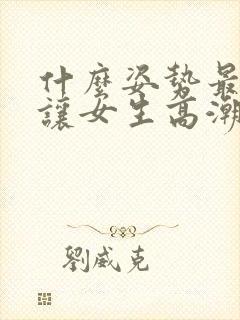 什麼姿勢最
讓女生高潮
劉威克